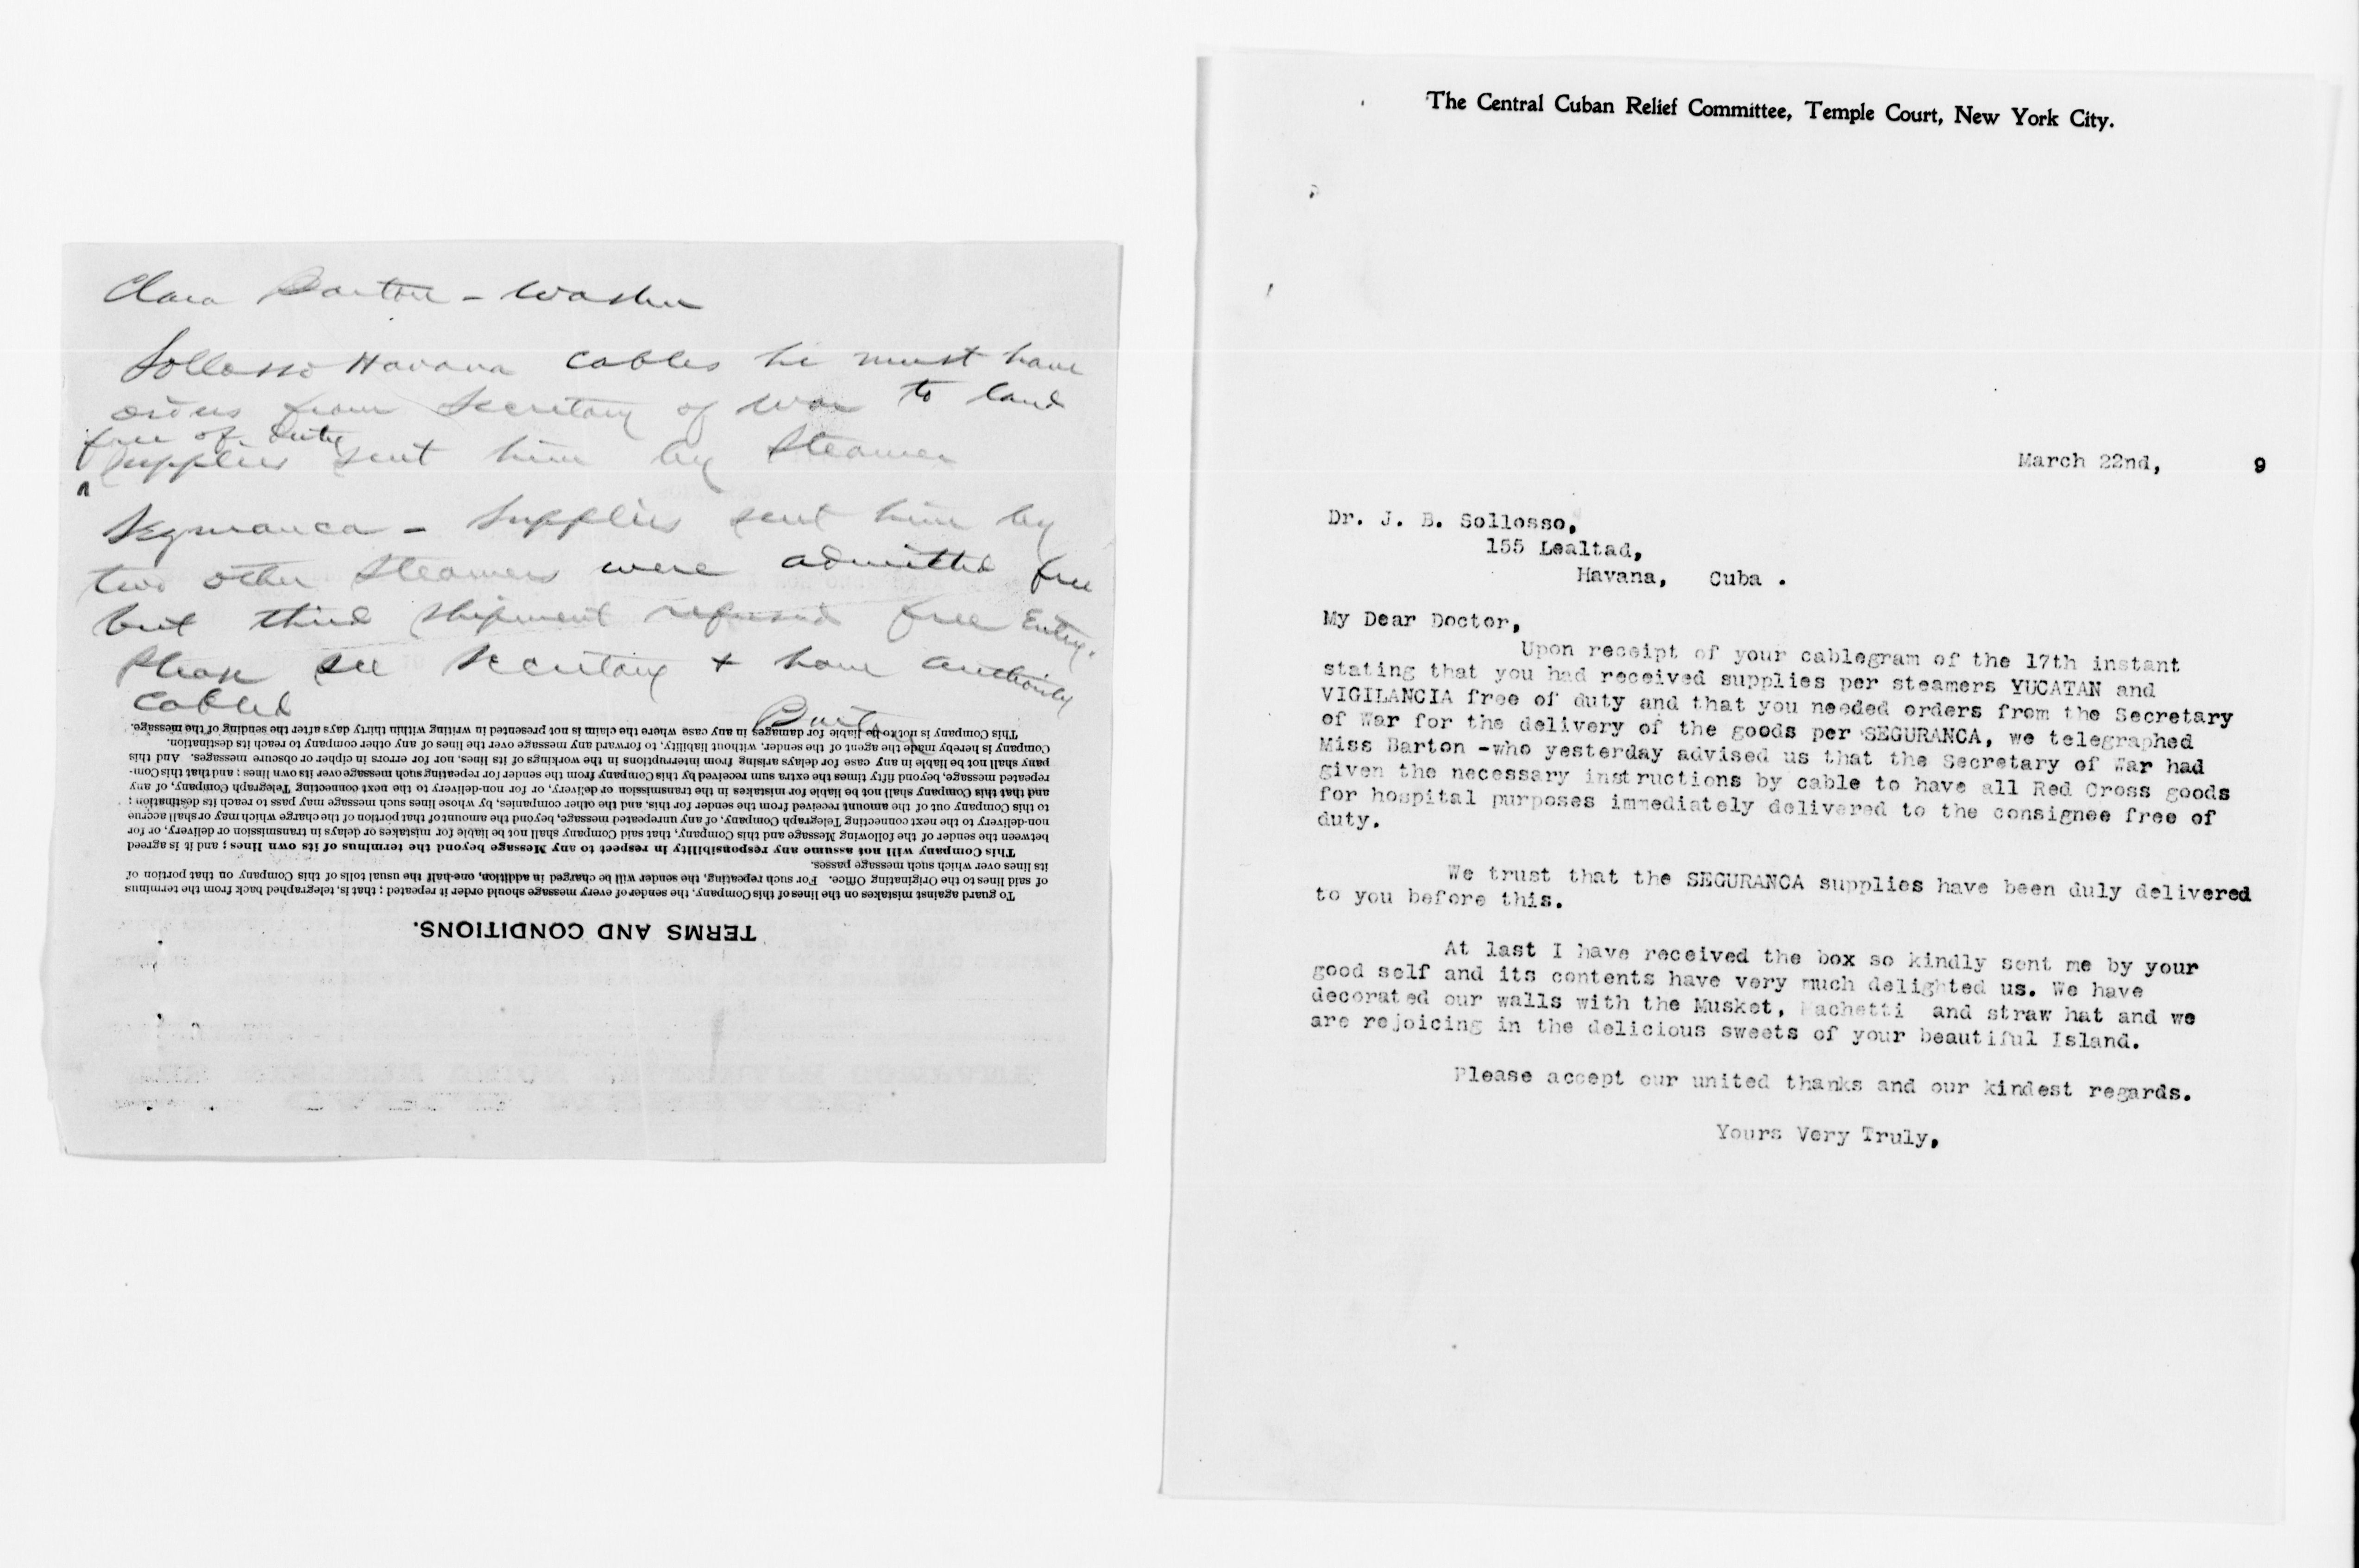 Clara Barton - Washn
Sollosso Havana cables he must have
orders from Secretary of War to land
free of duty
supplies sent him by Steamer
Seguranca - Supplies sent him by
two other Steamers were admitted free
but third shipment refused free Entry.
Please see Secretary + have authority
cabled
TERMS AND CONDITIONS.
To guard against mistakes on the lines of this Company, the sender of every message should order it repeated; that is, telegraphed back from the terminus
of said lines to the Originating Office. For such repeating, the sender will be charged in addition, one-half the usual tolls of this Company on that portion of
its lines over which such message passes.
This Company will not assume any responsibility in respect to any Message beyond the terminus of its own lines; and it is agreed
between the sender of the following Message and this Company, that said Company shall not be liable for mistakes or delays in transmission or delivery, or for
non-delivery to the next connecting Telegraph Company, of any unrepeated message, beyond the amount of that portion of the charge which may or shall accrue
to this Company out of the amount received from the sender for this, and the other companies, by whose lines such message may pass to reach its destination;
and that this Company shall not be liable for mistakes in the transmission or delivery, or for non-delivery to the next connecting Telegraph Company, of any
repeated message, beyond fifty times the extra sum received by this Company from the sender for repeating such message over its own lines; and that this Com-
pany shall not be liable in any case for delays arising from interruptions in the workings of its lines, nor for errors in cipher or obscure messages. And this
Company is hereby made the agent of the sender, without liability, to forward any message over the lines of any other company to reach its destination.
This Company is not to be liable for damages in any case where the claim is not presented in writing within thirty days after the sending of the message.
The Central Cuban Relief Committee, Temple Court, New York City.
March 22nd, 9
Dr. J. B. Sollosso,
155 Lealtad,
Havana, Cuba .
My Dear Doctor,
Upon receipt of your cablegram of the 17th instant
stating that you had received supplies per steamers YUCATAN and
VIGILANCIA free of duty and that you needed orders from the Secretary
of War for the delivery of the goods per SEGURANCA, we telegraphed
Miss Barton -who yesterday advised us that the Secretary of War had
given the necessary instructions by cable to have all Red Cross goods
for hospital purposes immediately delivered to the consignee free of
duty.
We trust that the SEGURANCA supplies have been duly delivered
to you before this.
At last I have received the box so kindly sent me by your
good self and its contents have very much delighted us. We have
decorated our walls with the Musket, Machetti and straw hat and we
are rejoicing in the delicious sweets of your beautiful Island.
Please accept our united thanks and our kindest regards.
Yours Very Truly,